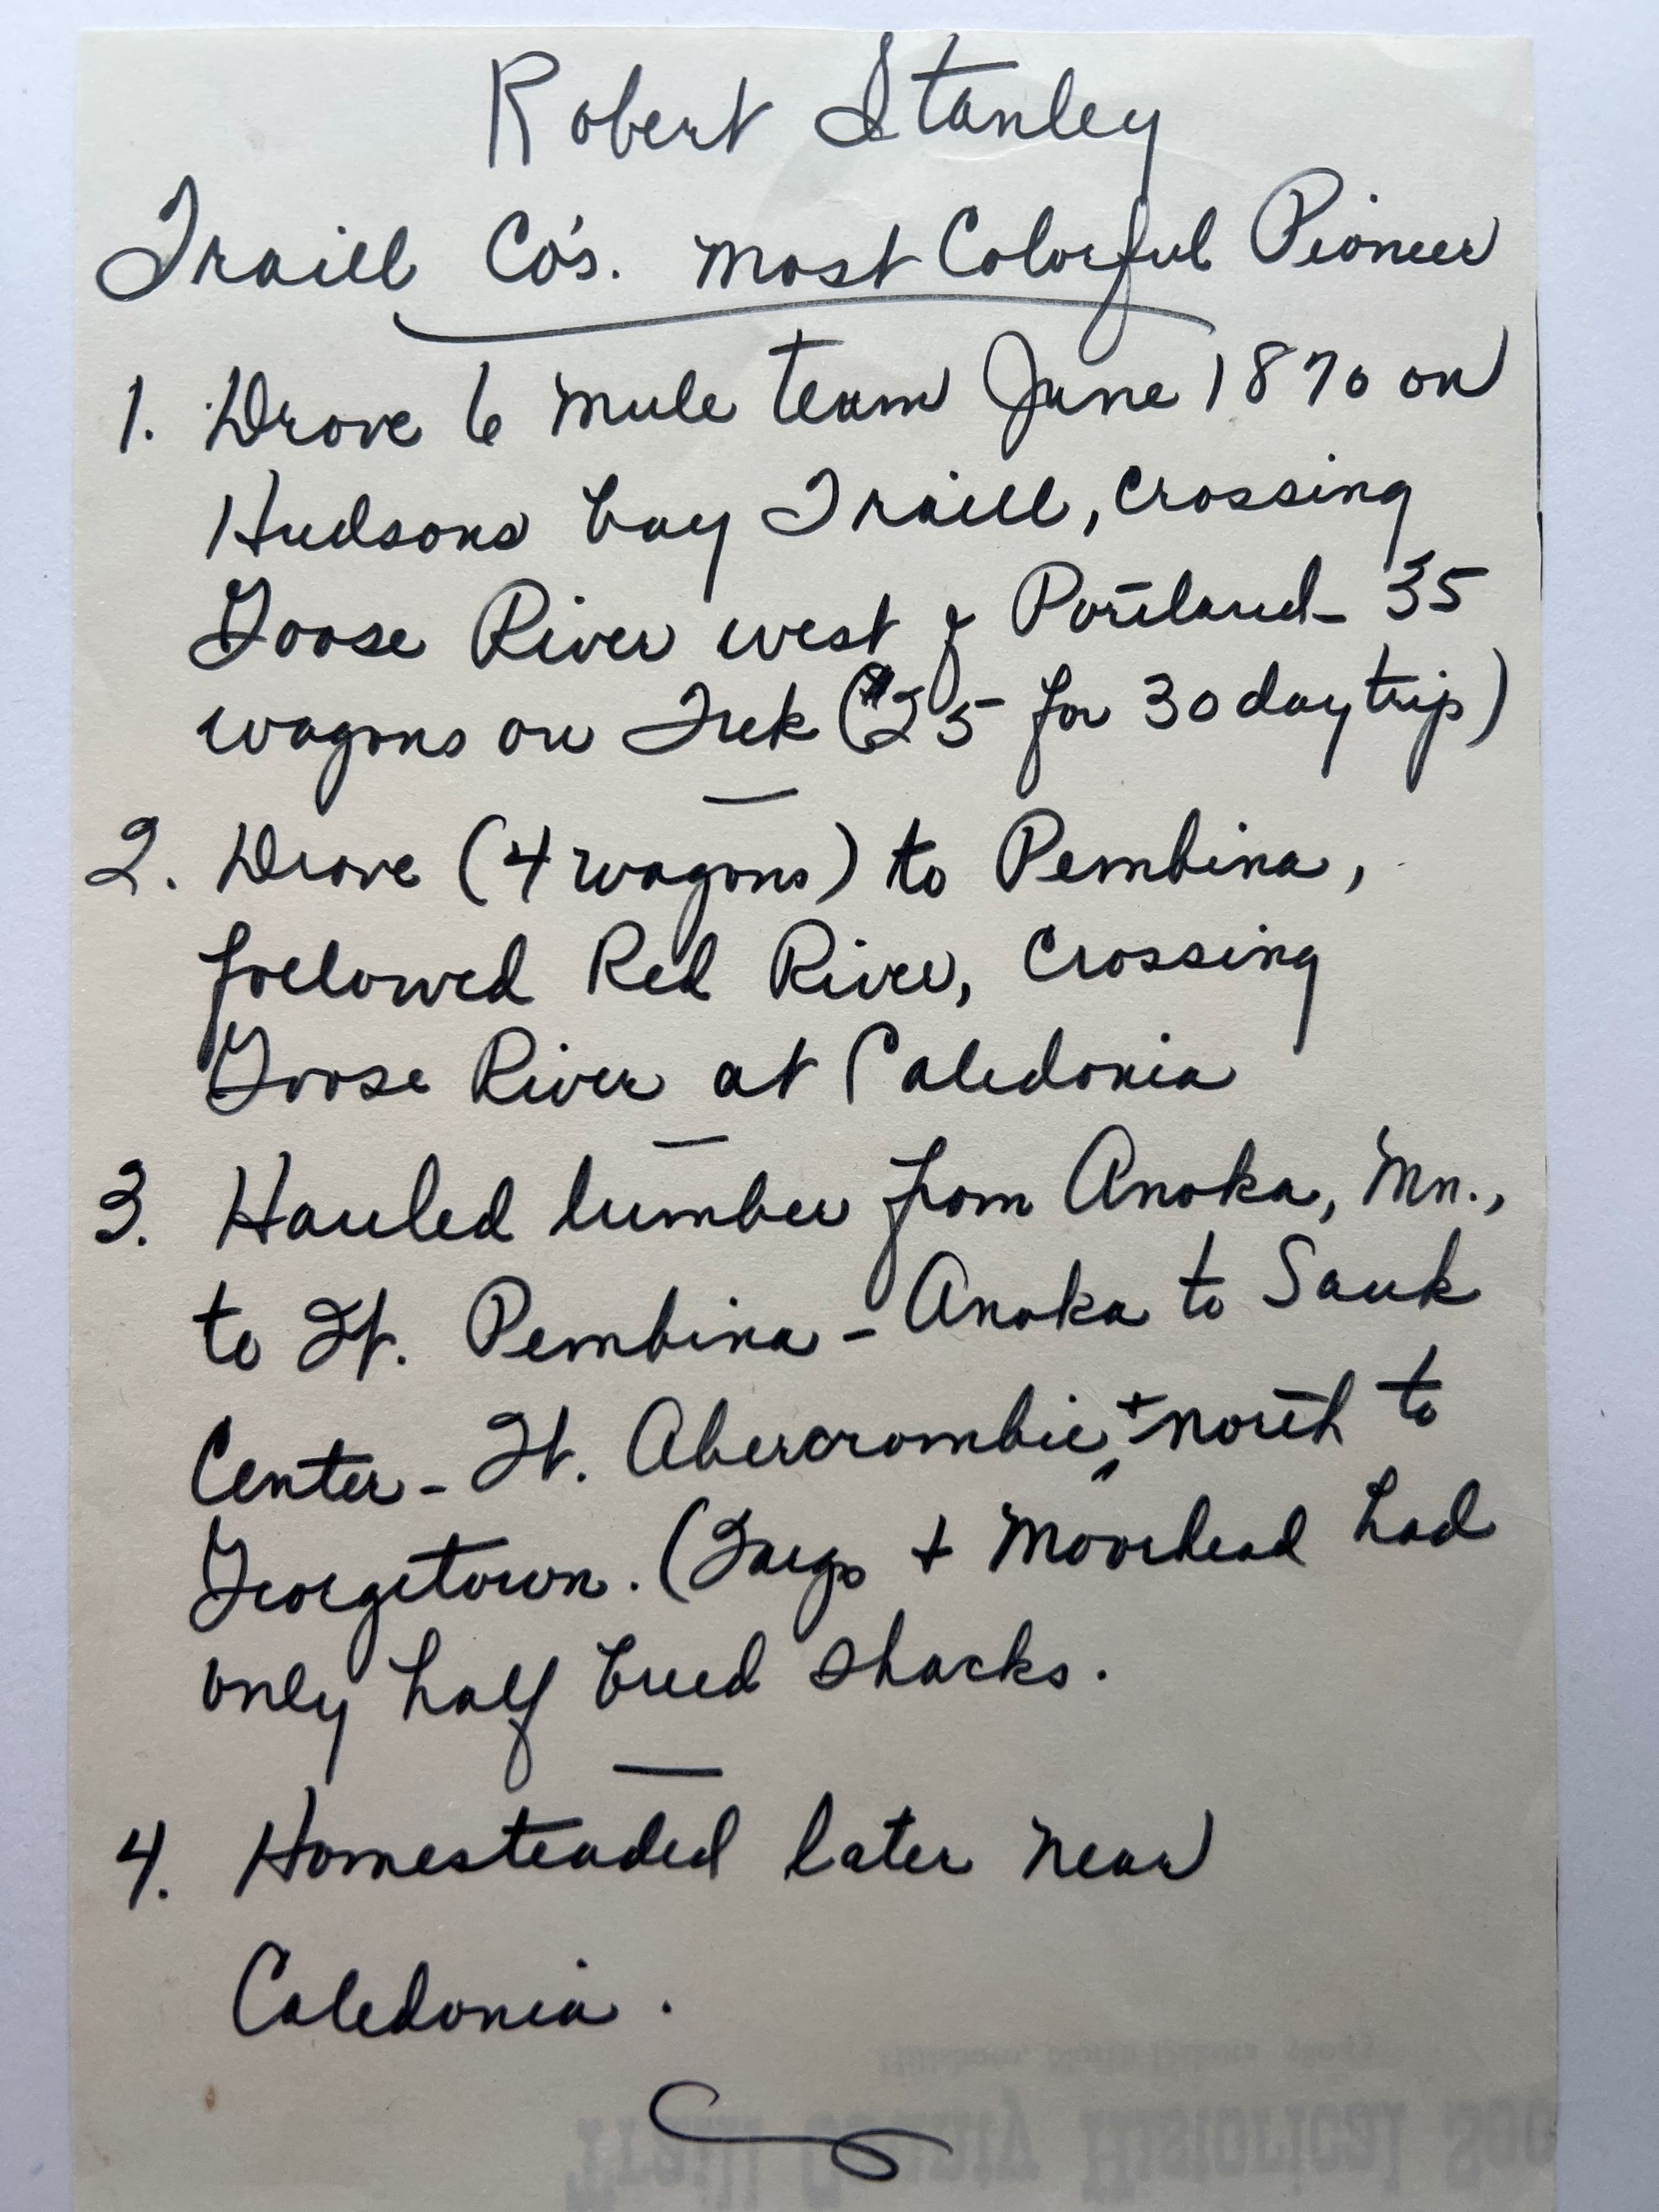 Robert Stanley
Traill Co's. most Colorful Pioneer
1. Drove 6 mule team June 1870 on
Hudsons bay Traill, crossing
Goose River west of Portland - 35
wagons on Trek ($25 for 30 day trip)
2. Drove (4 wagons) to Pembina,
followed Red River, crossing
Goose River at Caledonia
3. Hauled lumber from Anoka, Mn.,
to Ft. Pembina - Anoka to Sauk
Center - Ft. Abercrombie, + north to
Georgetown. (Fargo + Moorhead had
only half breed shacks.
4. Homesteaded later near
Caledonia.
Hillsboro, North Dakota 58045
Traill County Historical Soc